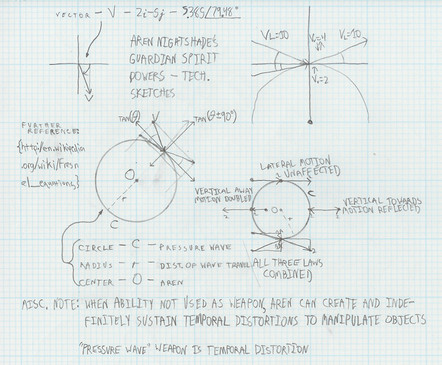 VECTOR - V - 2i-5j - 5.385/79.48°
AREN NIGHTSHADE'S
GUARDIAN SPIRIT
POWERS - TECH.
SKETCHES
V₁=10
V₂=2
FURTHER
REFERENCE:
{http://en.wikipedia
.org/wiki/Fresn
el_equations}
TAN(θ)
TAN(θ±90°)
V
O
r
C
LATERAL MOTION
UNAFFECTED
VERTICAL AWAY
MOTION DOUBLED
VERTICAL TOWARDS
MOTION REFLECTED
C
O
r
ALL THREE LAWS
COMBINED
CIRCLE - C - PRESSURE WAVE
RADIUS - r - DIST. OF WAVE TRAVEL
CENTER - O - AREN
MISC. NOTE: WHEN ABILITY NOT USED AS WEAPON, AREN CAN CREATE AND INDE-
FINITELY SUSTAIN TEMPORAL DISTORTIONS TO MANIPULATE OBJECTS
"PRESSURE WAVE" WEAPON IS TEMPORAL DISTORTION